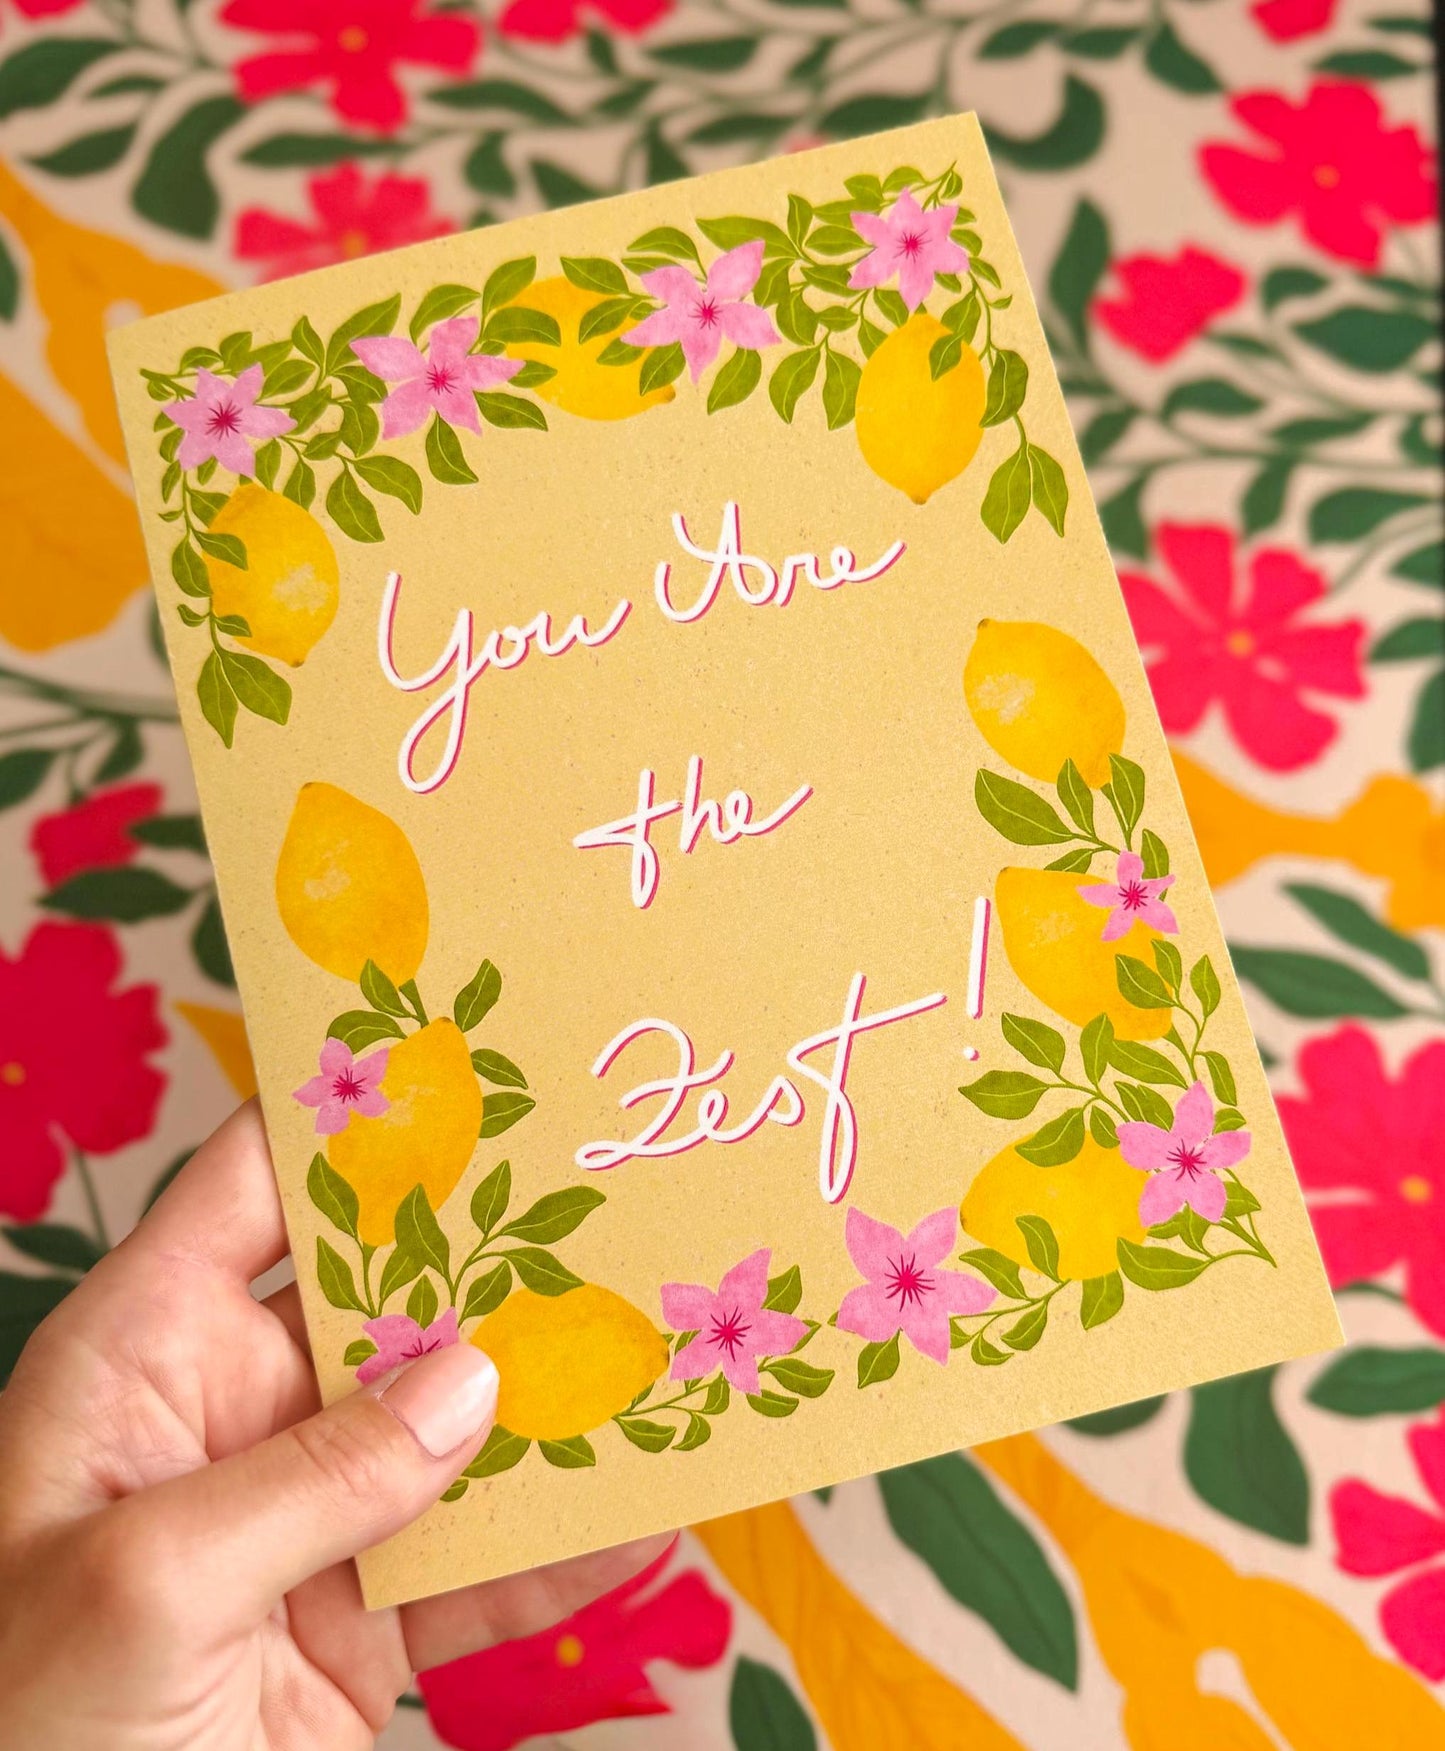 You Are
the
Zest!